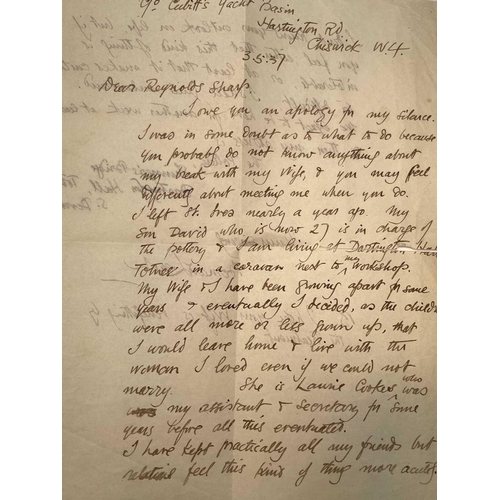 c/o Cubitt's Yacht Basin
Hartington Rd
Chiswick W.4.
3.5.37
Dear Reynolds Sharp.
I owe you an apology for my silence.
I was in some doubt as to what to do because
you probably do not know anything about
my break with my wife, & you may feel
differently about meeting me when you do.
I left St. Ives nearly a year ago. My
son David who is now 27 is in charge of
the pottery & I am living at Dartington Hall
Totnes in a caravan next to my workshop.
My wife & I have been growing apart for some
years & eventually I decided, as the children
were all more or less grown up, that
I would leave home & live with the
woman I loved even if we could not
marry. She is Laurie Cookes, who was
my assistant & secretary for some
years before all this eventuated.
I have kept practically all my friends but
relations feel this kind of thing more acutely